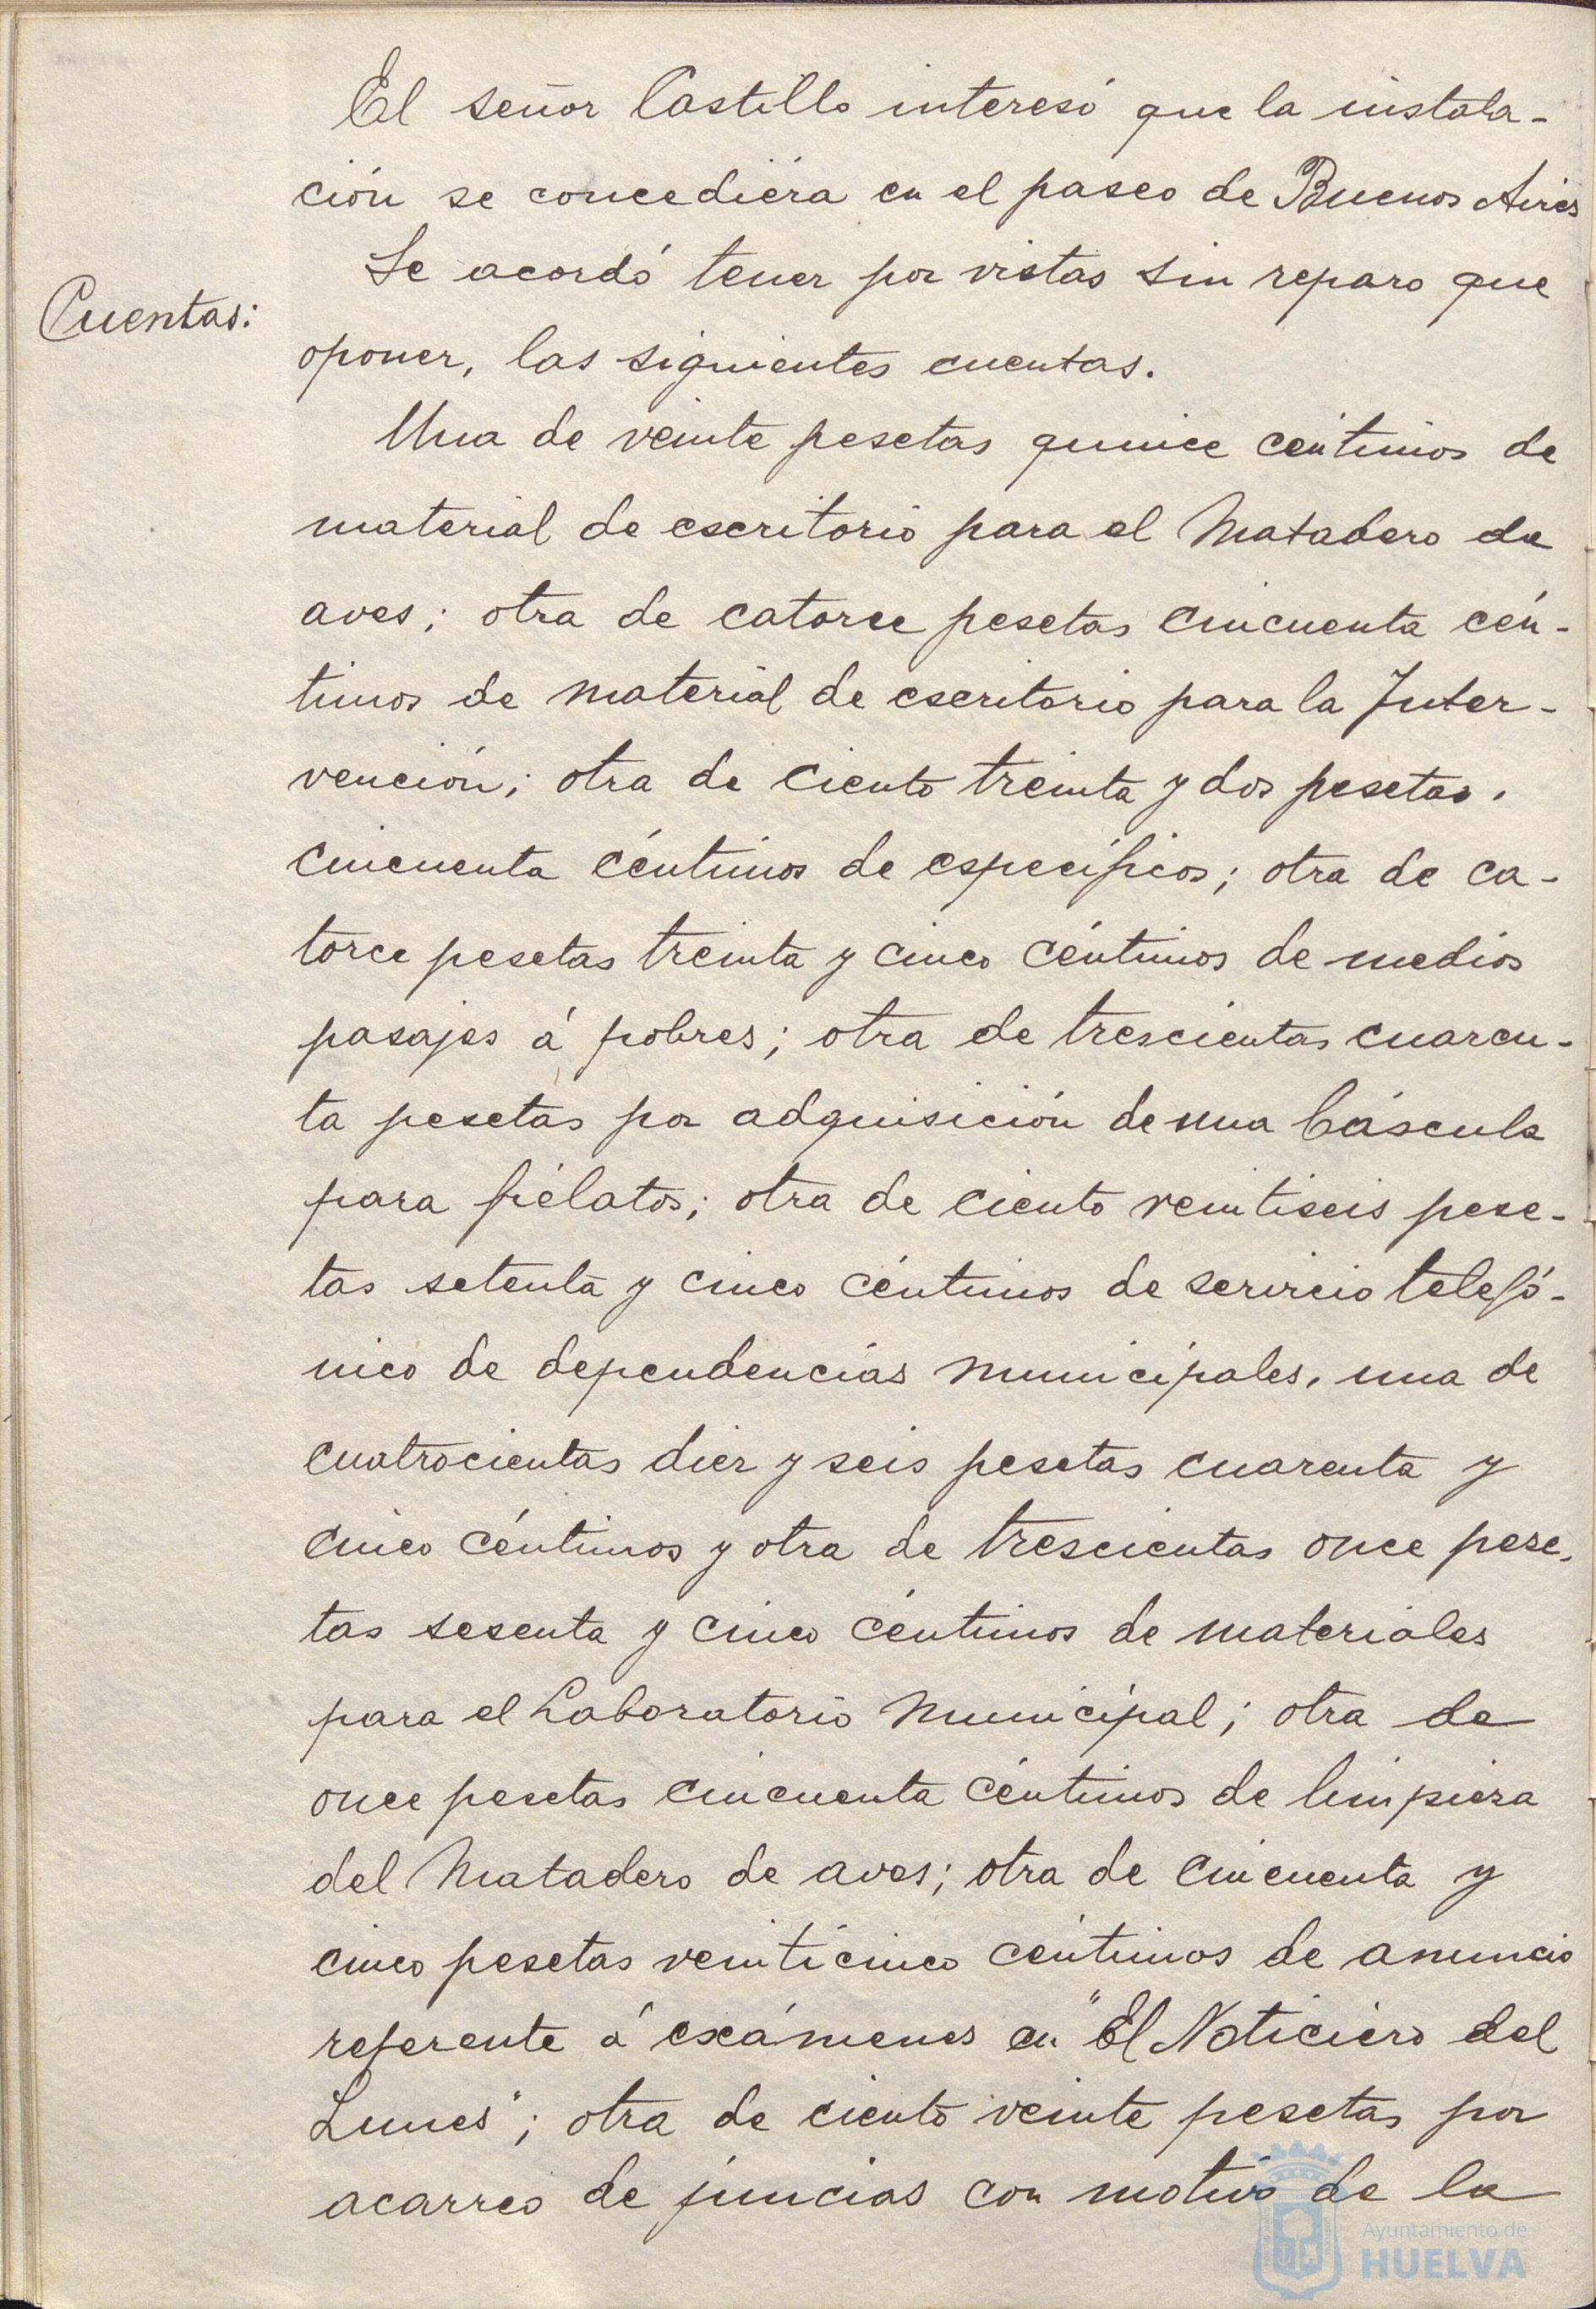 El señor Castillo interesó que la instala-
ción se concediera en el paseo de Buenos Aires
Cuentas:
Se acordó tener por vistas sin reparo que
oponer, las siguientes cuentas.
Una de veinte pesetas quince céntimos de
material de escritorio para el Matadero de
aves; otra de catorce pesetas cincuenta cén-
timos de material de escritorio para la Inter-
vención; otra de ciento treinta y dos pesetas.
cincuenta céntimos de específicos; otra de ca-
torce pesetas treinta y cinco céntimos de medios
pasajes á pobres; otra de trescientas cuaren-
ta pesetas por adquisición de una báscula
para fielatos; otra de ciento veintiseis pese-
tas setenta y cinco céntimos de servicio telefó-
nico de dependencias municipales, una de
cuatrocientas diez y seis pesetas cuarenta y
cinco céntimos y otra de trescientas once pese-
tas sesenta y cinco céntimos de materiales
para el Laboratorio Municipal; otra de
once pesetas cincuenta céntimos de limpieza
del Matadero de aves; otra de cincuenta y
cinco pesetas veinticinco céntimos de anuncio
referente á exámenes en "El Noticiero del
Lunes"; otra de ciento veinte pesetas por
acarreo de juncias con motivo de la
Ayuntamiento de
HUELVA